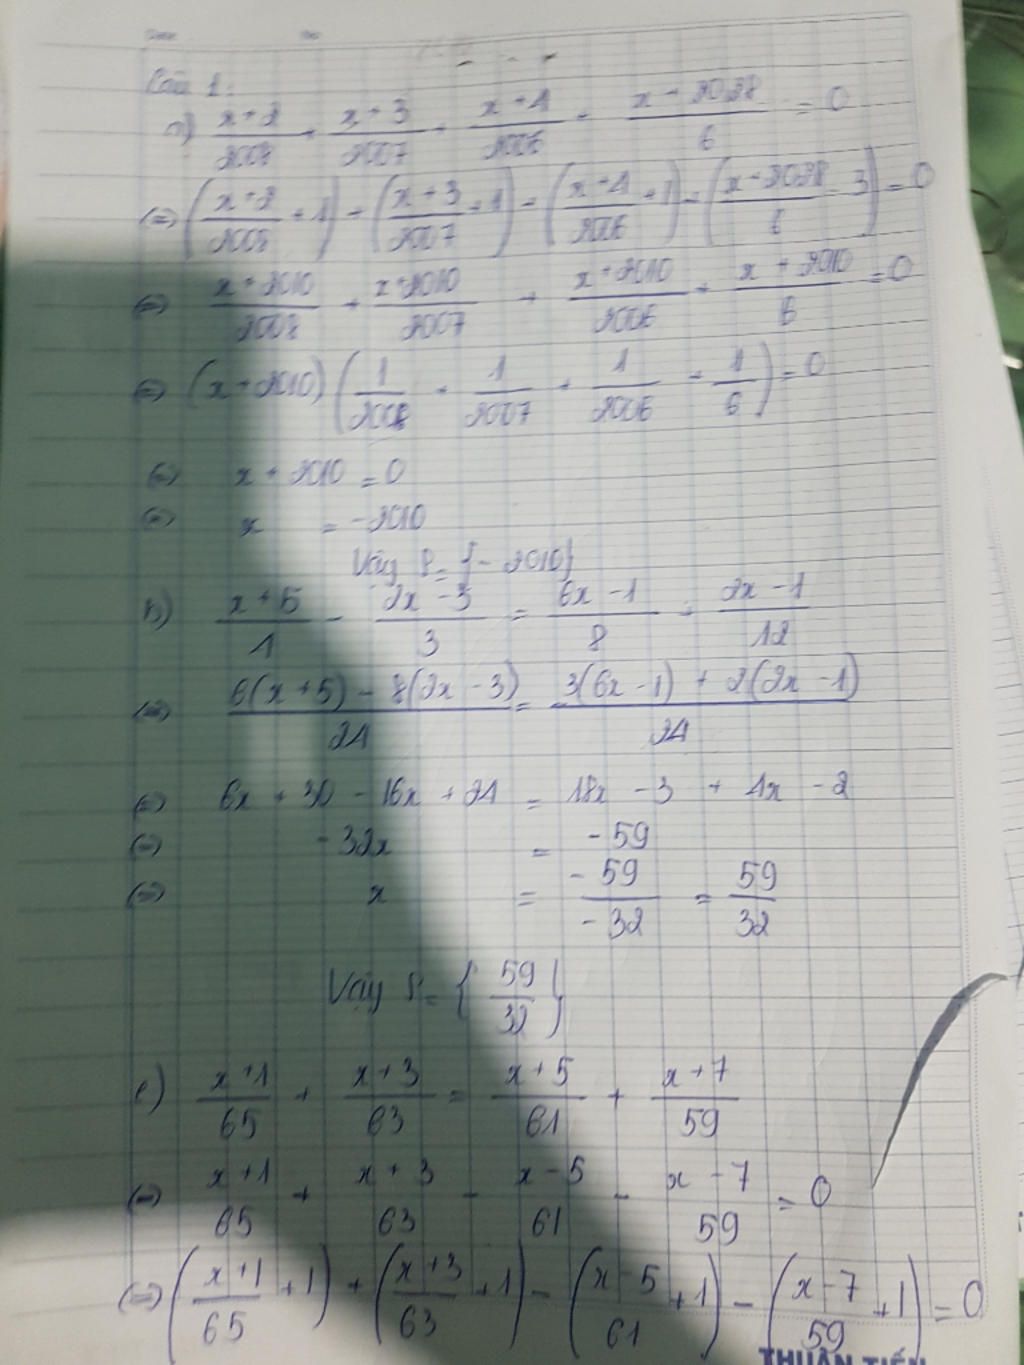 Câu 1:
a) x+2/2008 + x+3/2007 + x+4/2006 + x+2028/6 = 0
(=) (x+2/2008 + 1) + (x+3/2007 + 1) + (x+4/2006 + 1) + (x+2028/6 - 3) = 0
(=) x+2010/2008 + x+2010/2007 + x+2010/2006 + x+2010/6 = 0
(=) (x+2010) (1/2008 + 1/2007 + 1/2006 + 1/6) = 0
(=) x + 2010 = 0
(=) x = -2010
Vậy S = {-2010}
b) x+5/4 - 2x-3/3 = 6x-1/8 + 2x-1/12
(=) 6(x+5) - 8(2x-3)/24 = 3(6x-1) + 2(2x-1)/24
(=) 6x + 30 - 16x + 24 = 18x - 3 + 4x - 2
(=) -32x = -59
(=) x = -59/-32 = 59/32
Vậy S = {59/32}
c) x+1/65 + x+3/63 = x+5/61 + x+7/59
(=) x+1/65 + x+3/63 - x-5/61 - x-7/59 = 0
(=) (x+1/65 + 1) + (x+3/63 + 1) - (x-5/61 + 1) - (x-7/59 + 1) = 0
THUẬN TIẾN